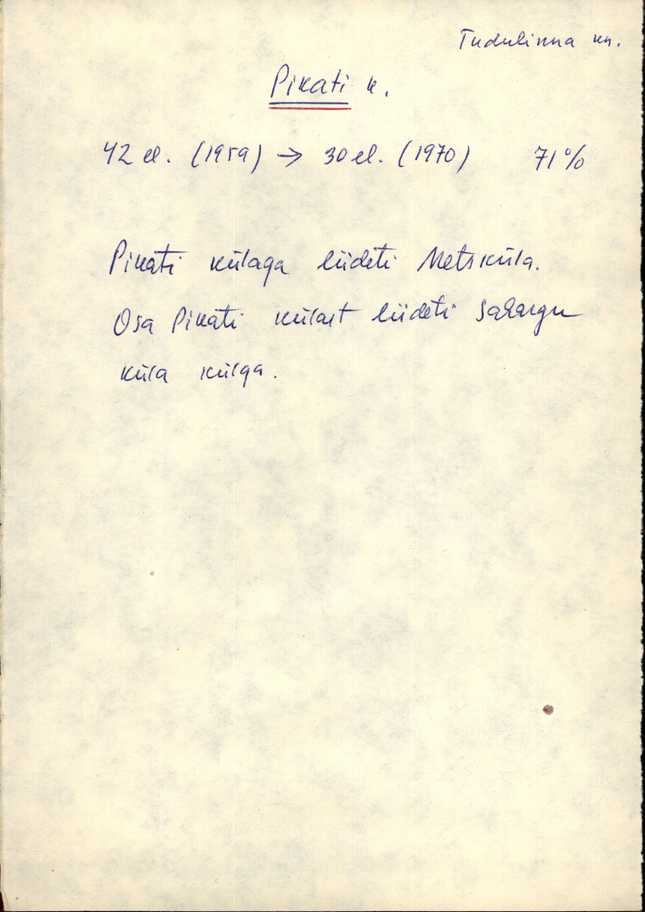 Tudulinna kn.
Pikati k.
42 el. (1959) → 30 el. (1970) 71%
Pikati külaga liideti Metsküla.
Osa Pikati külast liideti Saħargu
küla külga.